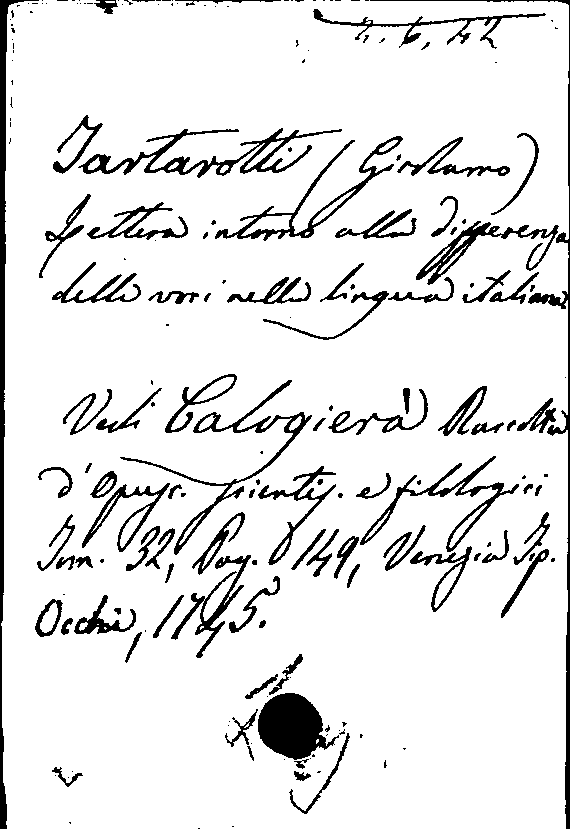 2. 6. 42
Tartarotti (Girolamo)
Lettera intorno alla differenza
delle voci nella lingua italiana
Vedi Calogierà Raccolta
d'Opusc. scientif. e filologici
Tom. 32, Pag. 149, Venezia Tip.
Occhi, 1745.